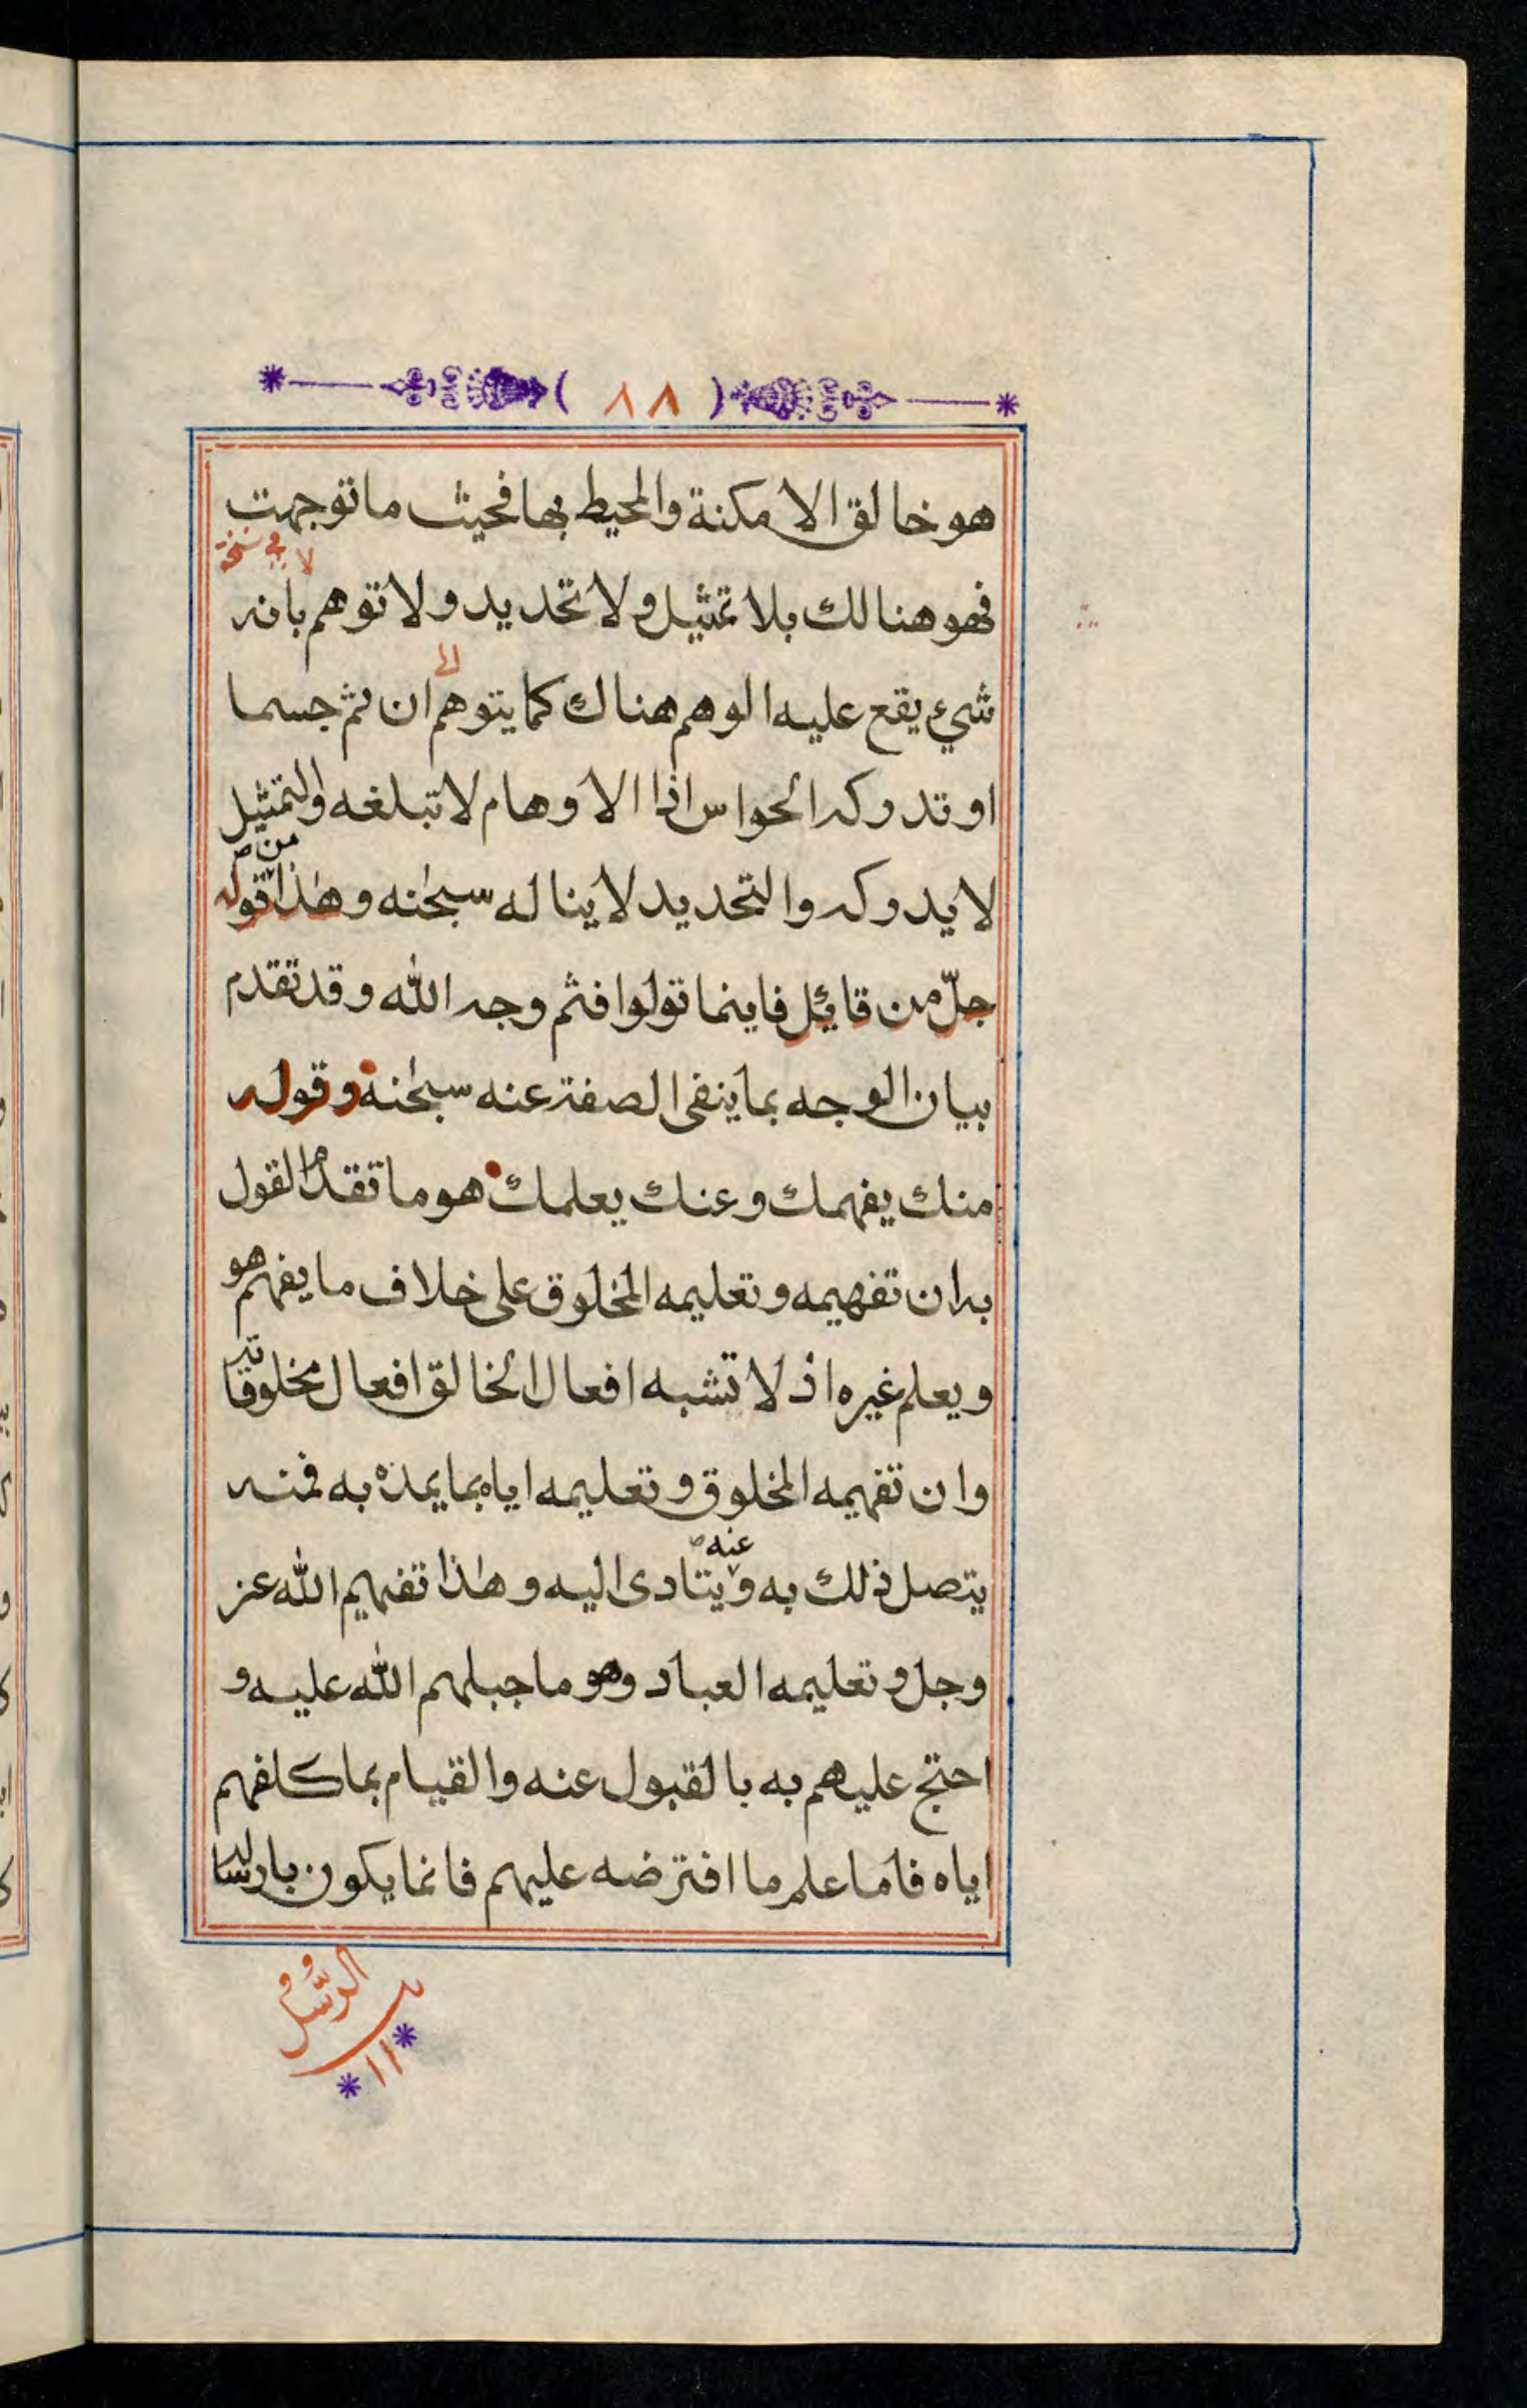 ( ٨٨ )
هو خالق الامكنة والمحيط بها فحيث ما توجهت
لا في نسخة
فهو هنالك بلا تمثيل ولا تحديد ولا توهم بانه
الى
شيء يقع عليه الوهم هناك كما يتوهم ان ثم جسما
او تدركه الحواس اذا الاوهام لا تبلغه والتمثيل
لا يدركه والتحديد لا يناله سبحٰنه وهٰذا من قوله
جلّ من قائل فاينما تولوا فثم وجه الله وقد تقدم
بيان الوجه بما ينفى الصفة عنه سبحٰنه وقوله
منك يفهمك وعنك يعلمك هو ما تقدم القول
به ان تفهيمه وتعليمه المخلوق على خلاف ما يفهم هو
ويعلم غيره اذ لا تشبه افعال الخالق افعال مخلوقاته
وان تفهيمه المخلوق وتعليمه اياه بما يمده به فمنه
يتصل ذٰلك به وعنه يتادى اليه وهٰذا تفهيم الله عز
وجل وتعليمه العباد وهو ما جبلهم الله عليه و
احتج عليهم به بالقبول عنه والقيام بما كلفهم
اياه فاما علم ما افترضه عليهم فانما يكون بارساله
الرُّسُل
١١